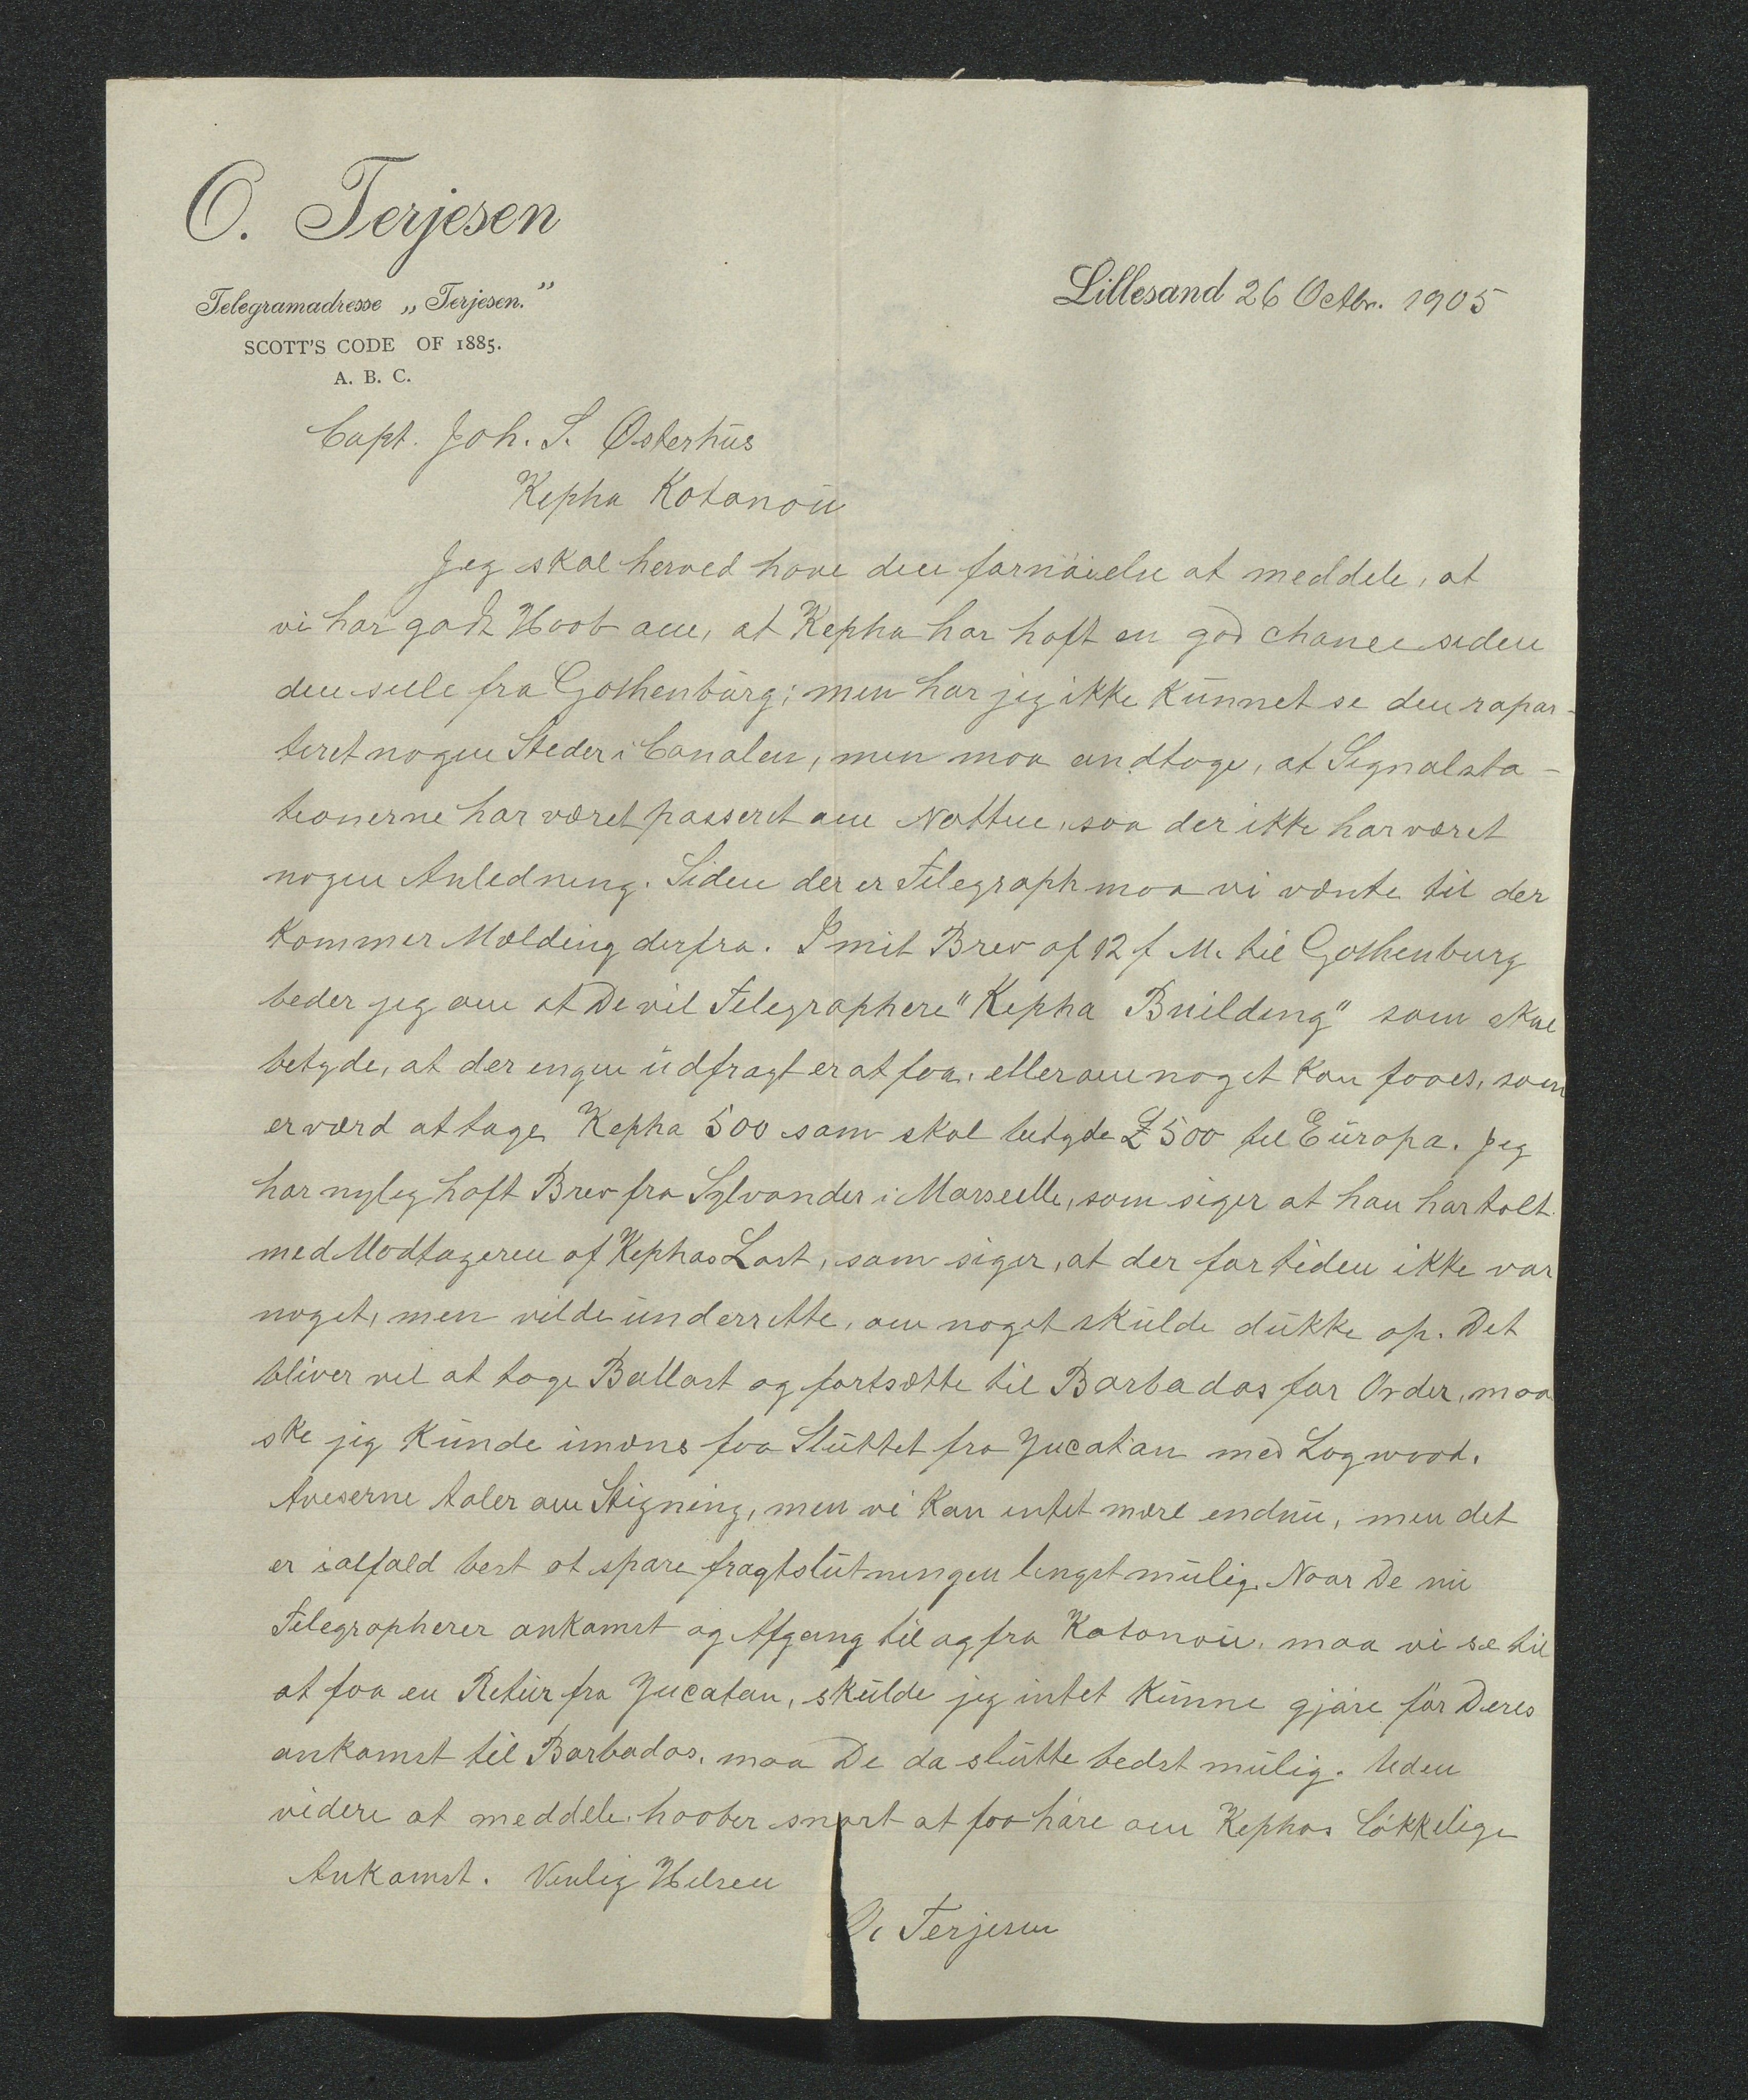 O. Terjesen
Telegramadresse „Terjesen."
SCOTT'S CODE OF 1885.
A. B. C.
Lillesand 26 Octbr. 1905
Capt. Joh. S. Østerhus
Kepha Kotonou
Jeg skal herved have den fornöielse at meddele, at
vi har godt Haab om, at Kepha har haft en god chance siden
den seile fra Gothenburg; men har jeg ikke kunnet se den rapor-
teret nogen Steder i Canalen, men maa andtage, at Signalsta-
tionerne har været passeret om Natten, saa der ikke har været
nogen Anledning. Siden der er Telegraph maa vi vænte til der
kommer Mælding derfra. I mit Brev af 12 f M. til Gothenburg
beder jeg om at De vil Telegraphere "Kepha Building" som skal
betyde, at der ingen udfragt er at faa, eller om noget kan faaes, som
er værd at tage, Kepha 500 som skal betyde £ 500 til Europa. Jeg
har nylig haft Brev fra Sylvander i Marseille, som siger at han har talt
med Modtageren af Kephas Last, som siger, at der for tiden ikke var
noget, men vilde underrette, om noget skulde dukke op. Det
bliver vel at tage Ballast og fortsætte til Barbados for Order, maa
ske jeg kunde imens faa Sluttet fra Yucatan med Logwood.
Aveserne taler om Stigning, men vi kan intet mærl endnu, men det
er ialfald best at spare fragtslutningen lengst mulig. Naar De nu
Telegrapherer ankomst og Afgang til og fra Kotonou, maa vi se til
at faa en Retur fra Yucatan, skulde jeg intet kunne gjöre för Deres
ankomst til Barbados, maa De da slutte bedst mulig. Uden
videre at meddele, haaber snart at faa höre om Kephas Lökkelige
Ankomst. Venlig Hilsen
O. Terjesen